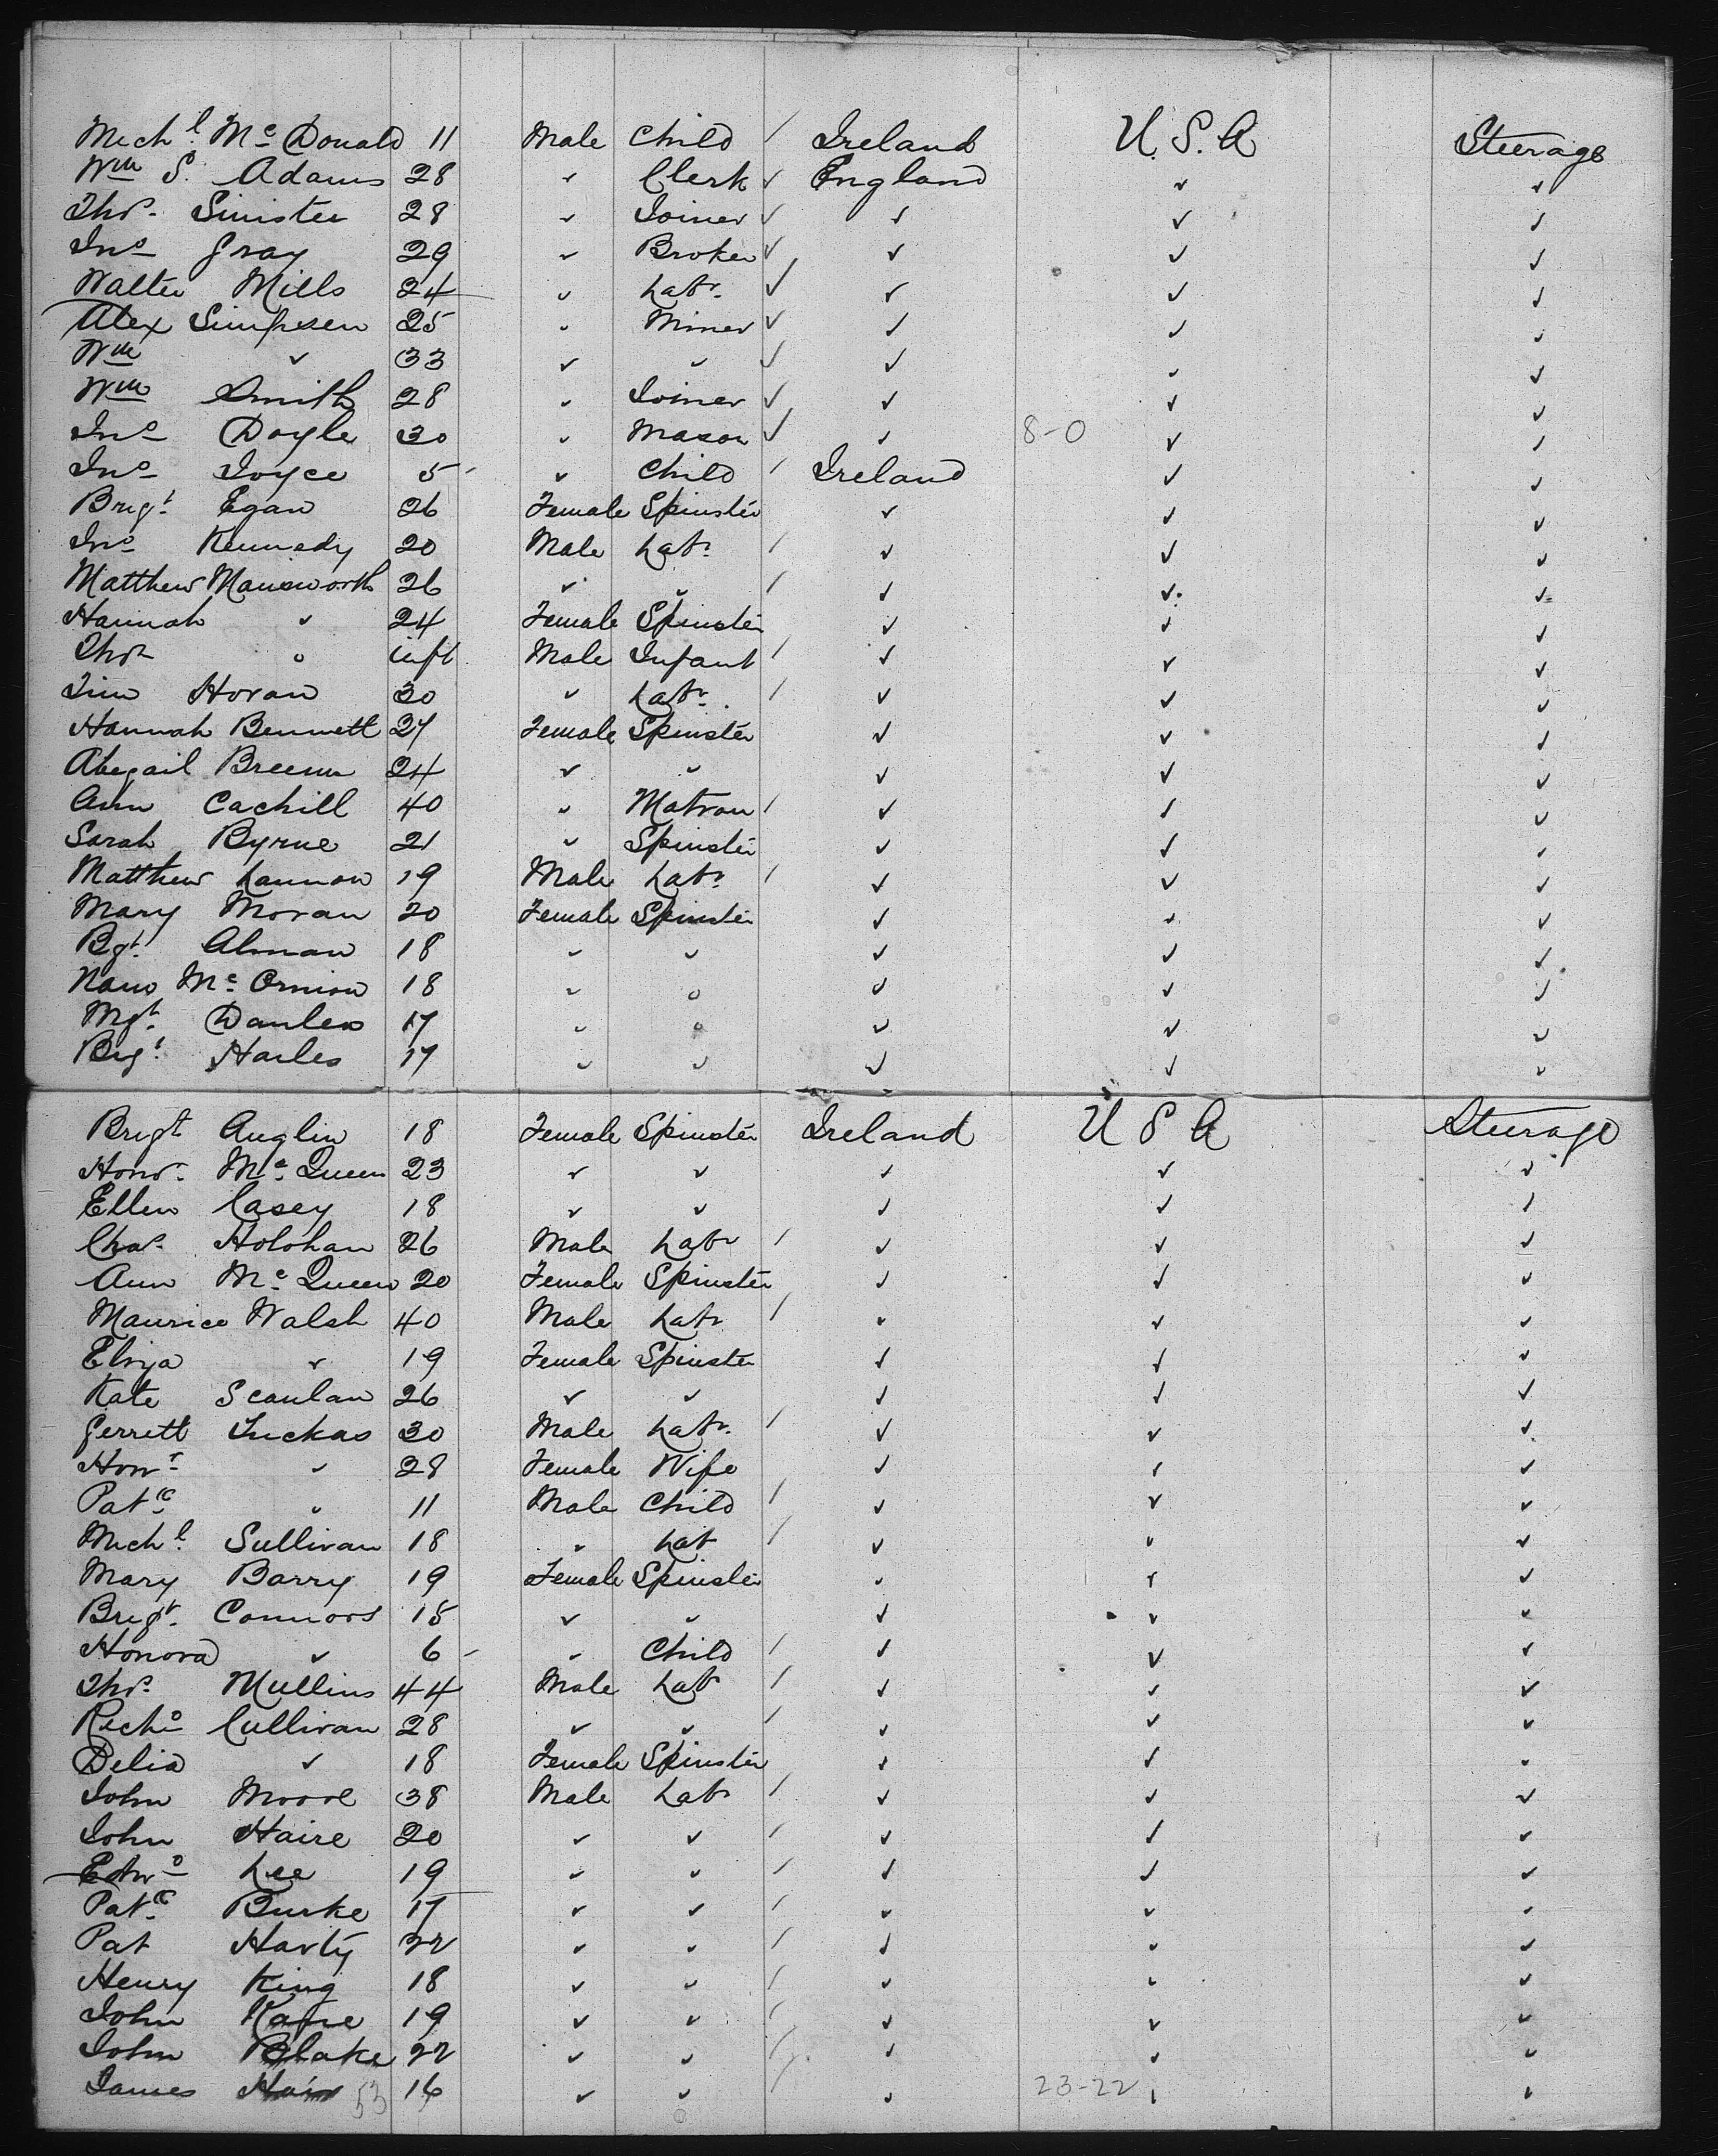 Mich.l Mc Donald 11 Male Child / Ireland U.S.A Steerage
Wm S. Adams 28 ✓ Clerk ✓ England ✓ ✓
Thos. Sinister 28 ✓ Joiner ✓ ✓ ✓ ✓
Jno Gray 29 ✓ Broker ✓ ✓ ✓ ✓
Walter Mills 24 ✓ Labr. ✓ ✓ ✓ ✓
Alex Simpson 25 ✓ Miner ✓ ✓ ✓ ✓
Wm ✓ 33 ✓ ✓ ✓ ✓ ✓ ✓
Wm Smith 28 ✓ Joiner ✓ ✓ ✓ ✓
Jno Doyle 30 ✓ Mason ✓ ✓ 8-0 ✓ ✓
Jno Joyce 5 ✓ Child / Ireland ✓ ✓
Brigt. Egan 26 Female Spinster ✓ ✓ ✓
Jno Kennedy 20 Male Labr. / ✓ ✓ ✓
Matthew Mansworth 26 ✓ ✓ / ✓ ✓ ✓
Hannah ✓ 24 Female Spinster ✓ ✓ ✓
Thos ✓ inft. Male Infant / ✓ ✓ ✓
Tim Horan 30 ✓ Labr. / ✓ ✓ ✓
Hannah Bennett 27 Female Spinster ✓ ✓ ✓
Abegail Breenn 24 ✓ ✓ ✓ ✓ ✓
Ann Cachill 40 ✓ Matron / ✓ ✓ ✓
Sarah Byrne 21 ✓ Spinster ✓ ✓ ✓
Matthew Lannon 19 Male Labr. / ✓ ✓ ✓
Mary Moran 20 Female Spinster ✓ ✓ ✓
Bgt. Alman 18 ✓ ✓ ✓ ✓ ✓
Mc Ornion 18 ✓ ✓ ✓ ✓ ✓
Mgt. 17 ✓ ✓ ✓ ✓ ✓
Bigt. Harles 17 ✓ ✓ ✓ ✓ ✓
Brigt Anglin 18 Female Spinster Ireland U S A Steerage
Honr. Mc Queen 23 ✓ ✓ ✓ ✓ ✓
Ellen Casey 18 ✓ ✓ ✓ ✓ ✓
Chas. Holohan 26 Male Labr / ✓ ✓ ✓
Ann Mc Queen 20 Female Spinster ✓ ✓ ✓
Maurice Walsh 40 Male Labr / ✓ ✓ ✓
Eliza ✓ 19 Female Spinster ✓ ✓ ✓
Kate Scanlan 26 ✓ ✓ ✓ ✓ ✓
Gerrett Luckas 30 Male Labr. / ✓ ✓ ✓
Honr ✓ 28 Female Wife ✓ ✓ ✓
Patk ✓ 11 Male Child / ✓ ✓ ✓
Michl. Sullivan 18 ✓ Lab / ✓ ✓ ✓
Mary Barry 19 Female Spinster ✓ ✓ ✓
Brigt. Connors 15 ✓ ✓ ✓ ✓ ✓
Honora ✓ 6 ✓ Child / ✓ ✓ ✓
Thos. Mullins 44 Male Labr / ✓ ✓ ✓
Richd Cullivan 28 ✓ ✓ / ✓ ✓ ✓
Delia ✓ 18 Female Spinster ✓ ✓ ✓
John Moore 38 Male Labr / ✓ ✓ ✓
John Haire 20 ✓ ✓ / ✓ ✓ ✓
Edwd Lee 19 ✓ ✓ / ✓ ✓ ✓
Patk Burke 17 ✓ ✓ / ✓ ✓ ✓
Pat Harty 22 ✓ ✓ / ✓ ✓ ✓
Henry King 18 ✓ ✓ / ✓ ✓ ✓
John Kane 19 ✓ ✓ / ✓ ✓ ✓
John Blake 22 ✓ ✓ / ✓ ✓ ✓
James 53 16 ✓ ✓ / ✓ 23-22 ✓ ✓